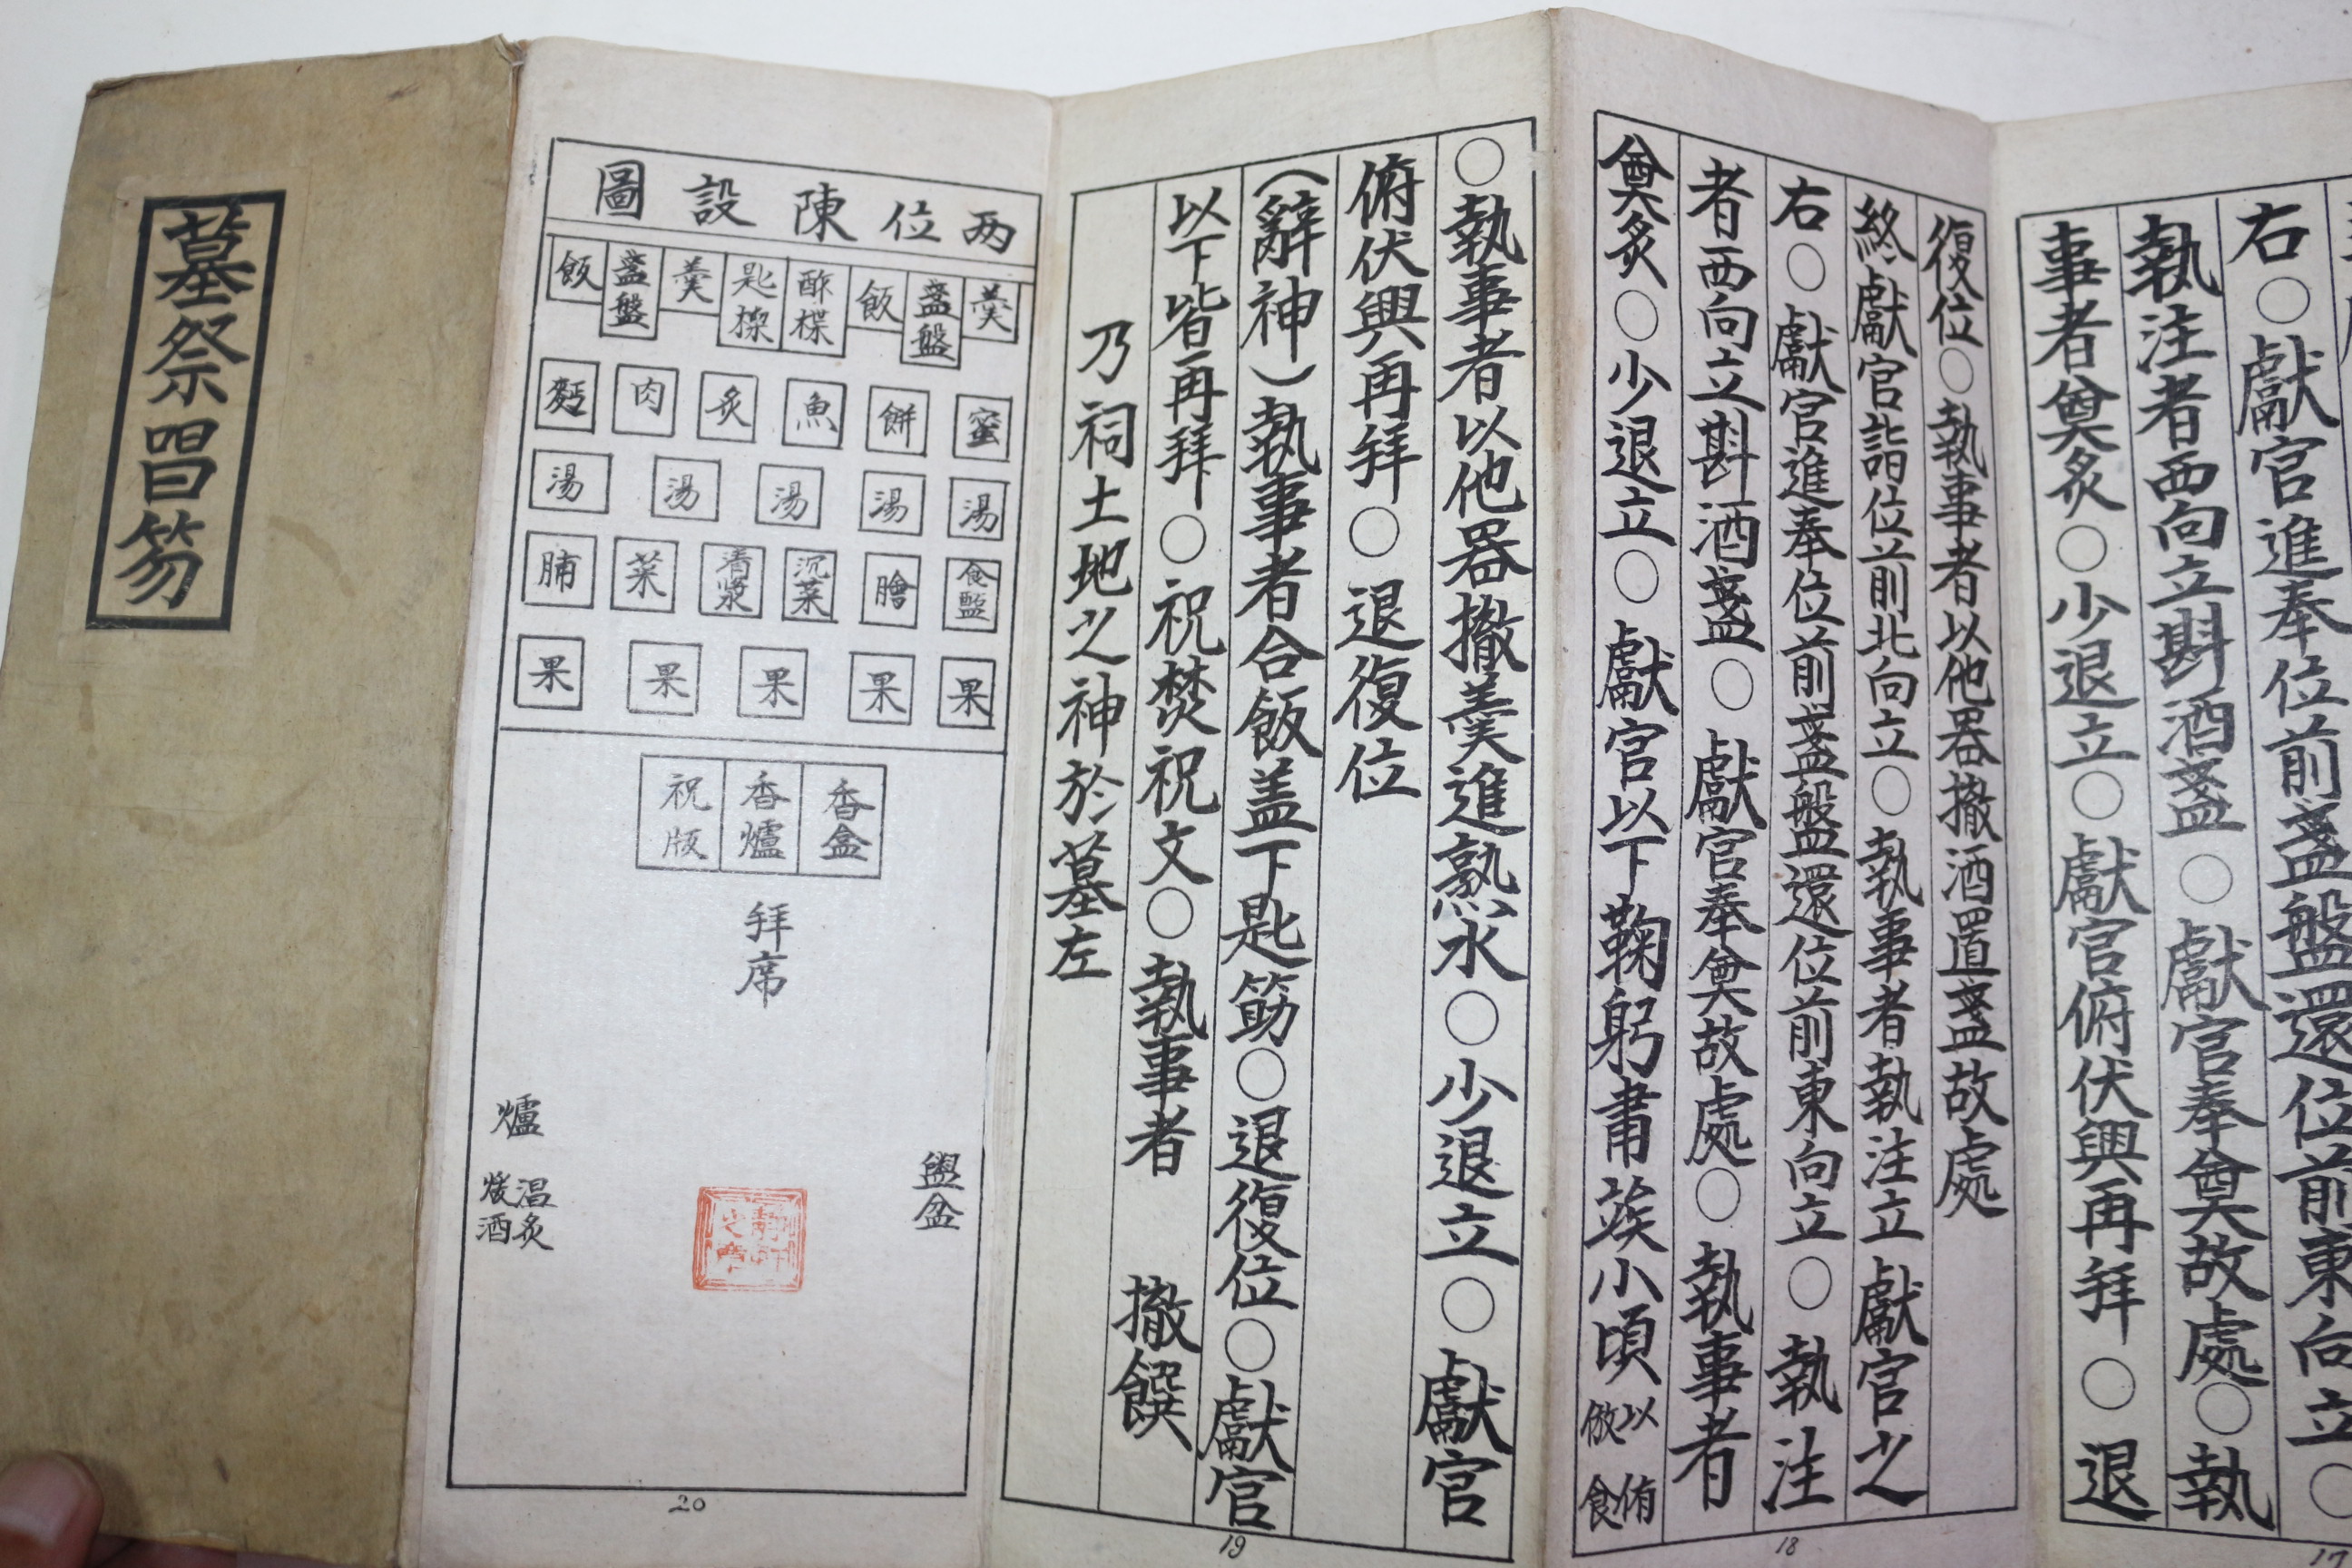 墓祭笏
两位陳設圖
飯 盞盤 羹 匙楪 酢楪 飯 盞盤 羹
麪 肉 炙 魚 餠 蜜
湯 湯 湯 湯 湯
脯 菜 清漿 沉菜 膾 食醢
果 果 果 果 果
祝版 香爐 香盒
拜席
爐
温炙
煖酒
盥盆
20
○執事者以他器撤羹進熟水○少退立○獻官
俯伏興再拜○退復位
(辭神)執事者合飯盖下匙筯○退復位○獻官
以下皆再拜○祝焚祝文○執事者 撤饌
乃祠土地之神於墓左
19
復位○執事者以他器撤酒置盞故處
終獻官詣位前北向立○執事者執注立獻官之
右○獻官進奉位前盞盤還位前東向立○執注
者西向立斟酒盞○獻官奉奠故處○執事者
奠炙○少退立○獻官以下鞠躬肅竢小頃以侑倣食
18
右○獻官進奉位前盞盤還位前東向立○
執注者西向立斟酒盞○獻官奉奠故處○執
事者奠炙○少退立○獻官俯伏興再拜○退
17